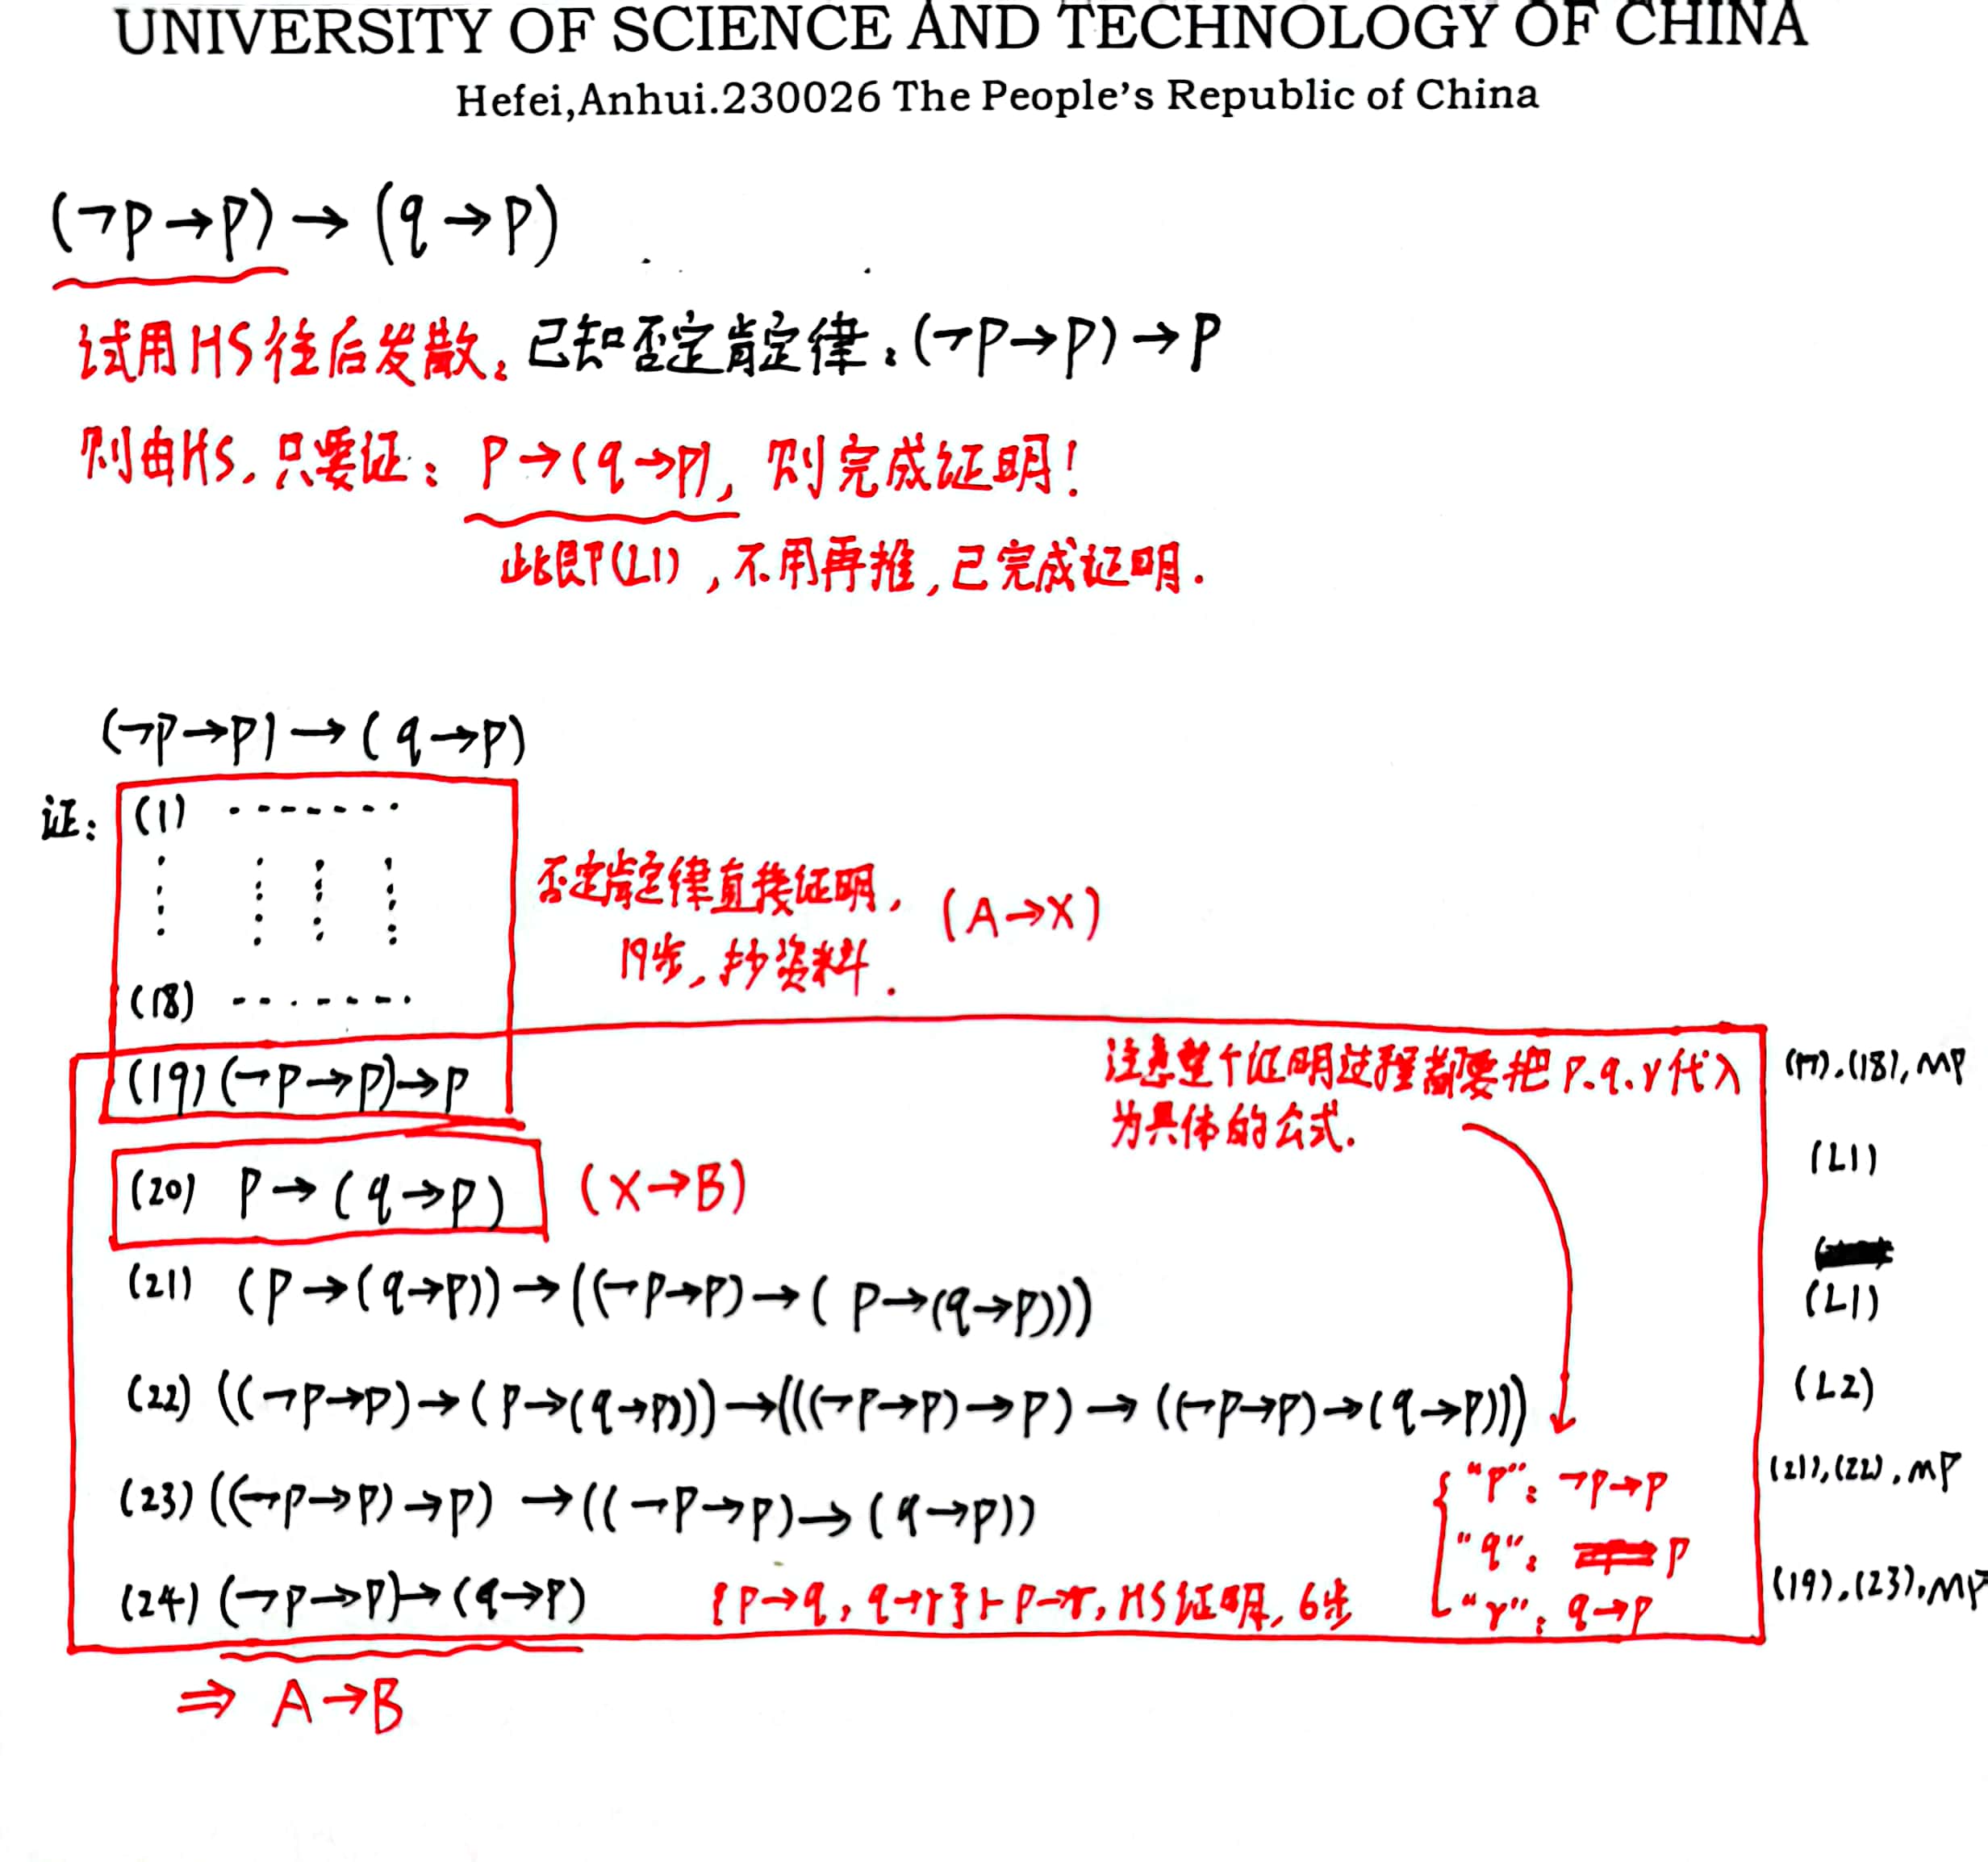 UNIVERSITY OF SCIENCE AND TECHNOLOGY OF CHINA
Hefei,Anhui.230026 The People's Republic of China
(¬p→p)→(q→p)
试用HS往后发散。已知否定肯定律:(¬p→p)→p
则由HS,只要证:p→(q→p),则完成证明!
此即(L1),不用再推,已完成证明.
(¬p→p)→(q→p)
证:(1) -------
否定肯定律直接证明, (A→X)
19步,抄资料.
(18) -------
(19)(¬p→p)→p (17).(18),MP
注意整个证明过程都要把p.q.r代入
为具体的公式.
(20) p→(q→p) (X→B) (L1)
(21) (p→(q→p))→((¬p→p)→(p→(q→p))) (L1)
(22) ((¬p→p)→(p→(q→p)))→(((¬p→p)→p)→((¬p→p)→(q→p))) (L2)
(23) ((¬p→p)→p)→((¬p→p)→(q→p)) (21),(22),MP
"p": ¬p→p
"q": p
"r": q→p
(24) (¬p→p)→(q→p) {p→q, q→r}⊢p→r, HS证明, 6步 (19).(23).MP
⇒ A→B